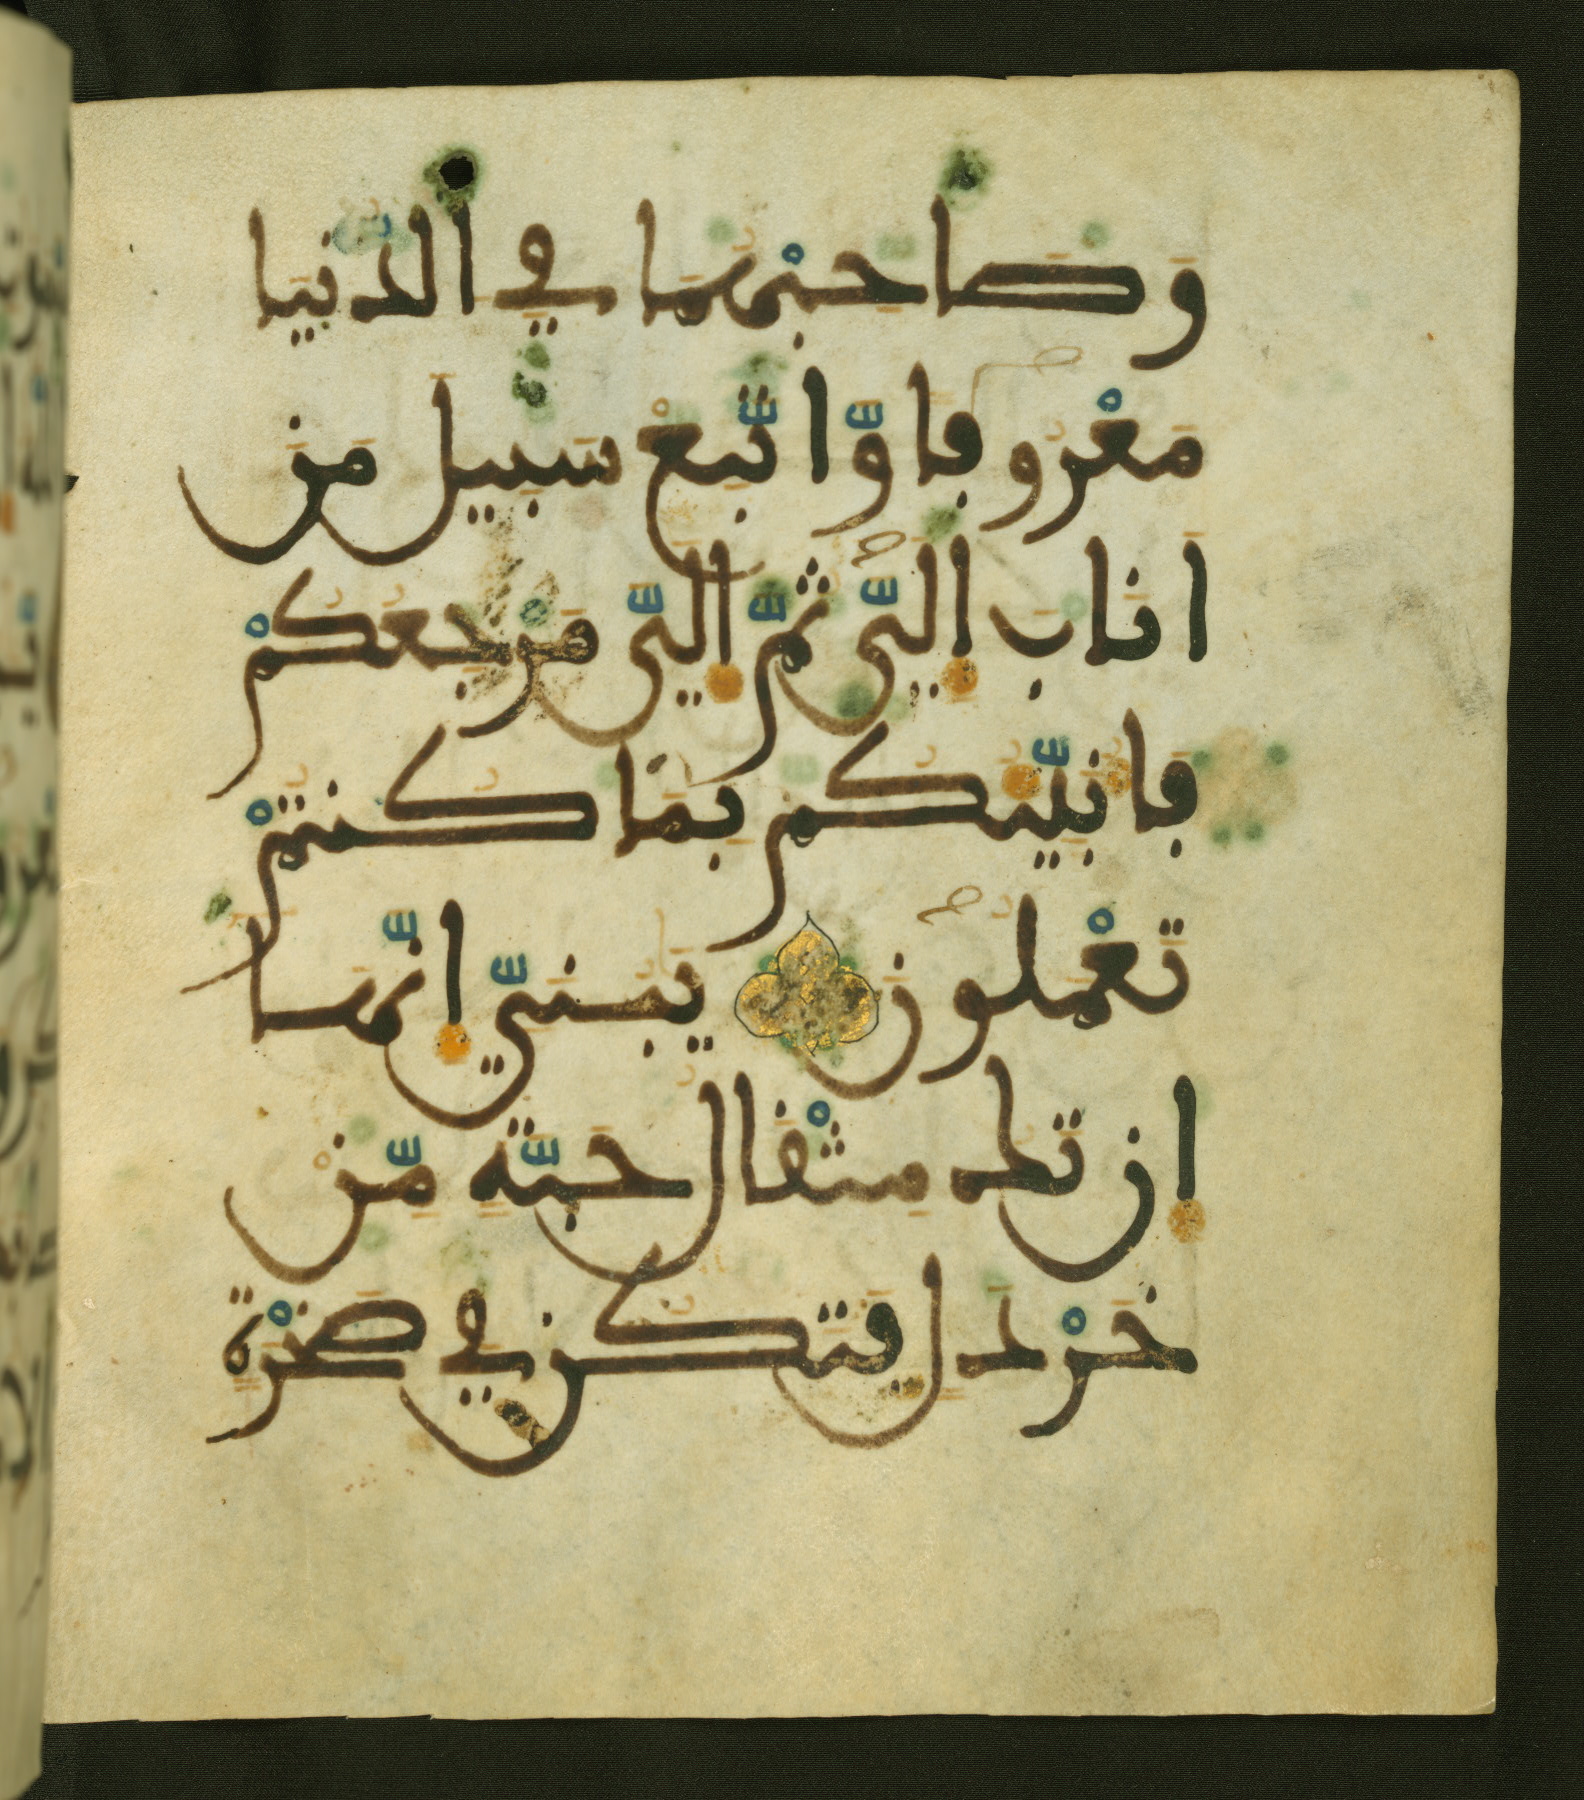 وَصَاحِبْهُمَا فِي الدُّنْيَا
مَعْرُوفًا وَّاتَّبِعْ سَبِيلَ مَنْ
اَنَابَ إِلَيَّ ثُمَّ إِلَيَّ مَرْجِعُكُمْ
فَأُنَبِّئُكُم بِمَا كُنتُمْ
تَعْمَلُونَ يَبُنَيِّ إِنَّهَا
إِن تَكُ مِثْقَالُ حَبَّةٍ مِّنْ
خَرْدَلٍ فَتَكُن فِي صَخْرَةٍ